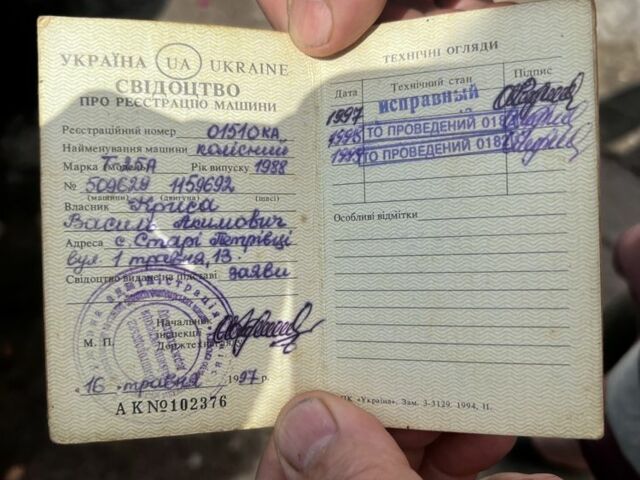 УКРАЇНА UA UKRAINE
СВІДОЦТВО
ПРО РЕЄСТРАЦІЮ МАШИНИ
Реєстраційний номер 01510КА
Найменування машини колісний
Марка (модель) Т-25А Рік випуску 1988
№ 509629 1159692
(машини) (двигуна) (шасі)
Власник Криса
Василь Якимович
Адреса с. Старі Петрівці
вул. 1 травня, 13.
Свідоцтво видане на підставі заяви
Начальник
інспекції
Держтехнагляду
М. П.
"16" травня 1997 р.
АК №102376
ТЕХНІЧНІ ОГЛЯДИ
Дата Технічний стан Підпис
1997 исправный
1998 ТО ПРОВЕДЕНИЙ 018
1999 ТО ПРОВЕДЕНИЙ 018
Особливі відмітки
ПК «Україна». Зам. 3-3129. 1994, II.